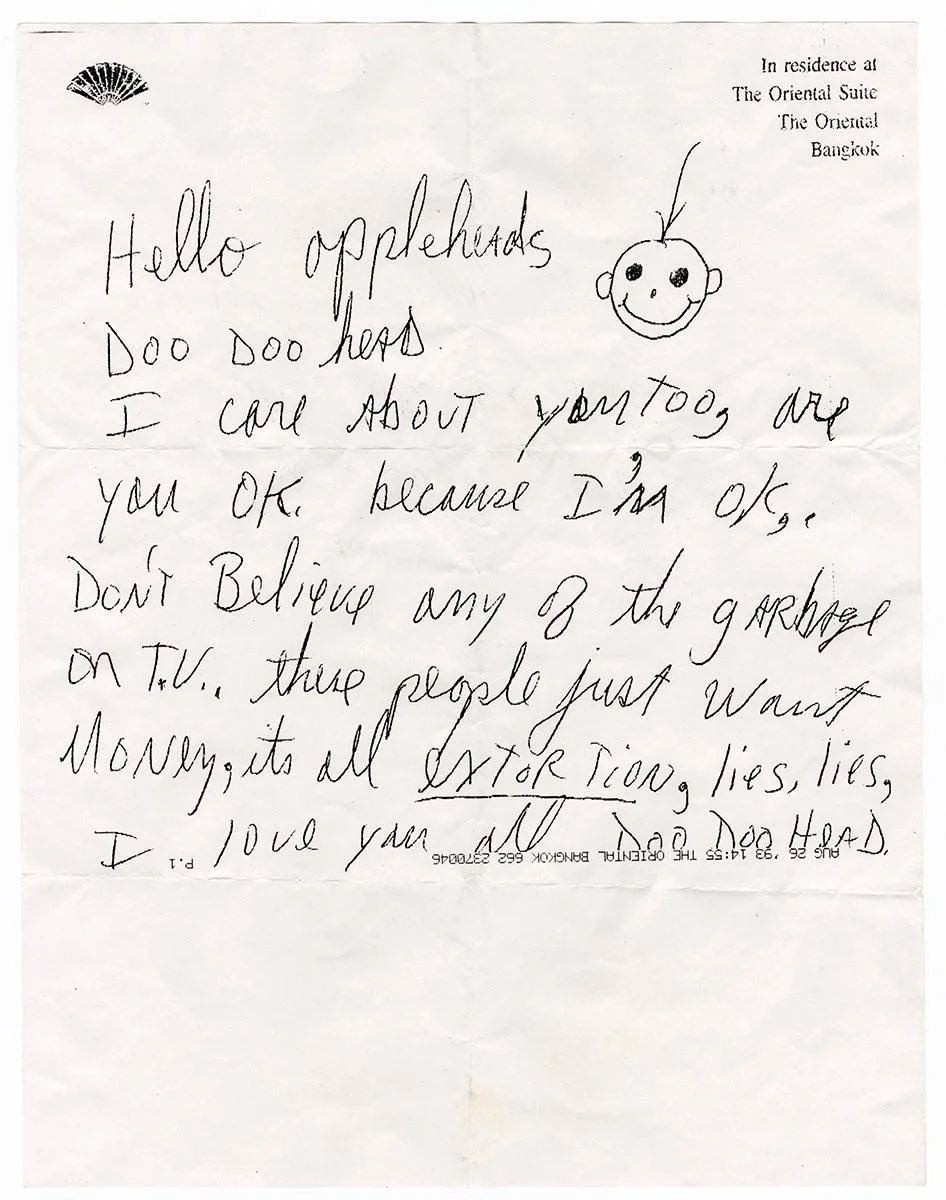 In residence at
The Oriental Suite
The Oriental
Bangkok
Hello appleheads
Doo Doo heAD.
I care About you too, are
you OK. because I'm OK,.
Don't Believe any of the gARbage
on T.V., these people just want
Money, its all extortion, lies, lies,
I love you all Doo Doo HeAD.
AUG 26 '93 14:55 THE ORIENTAL BANGKOK 662 2370046 P.1